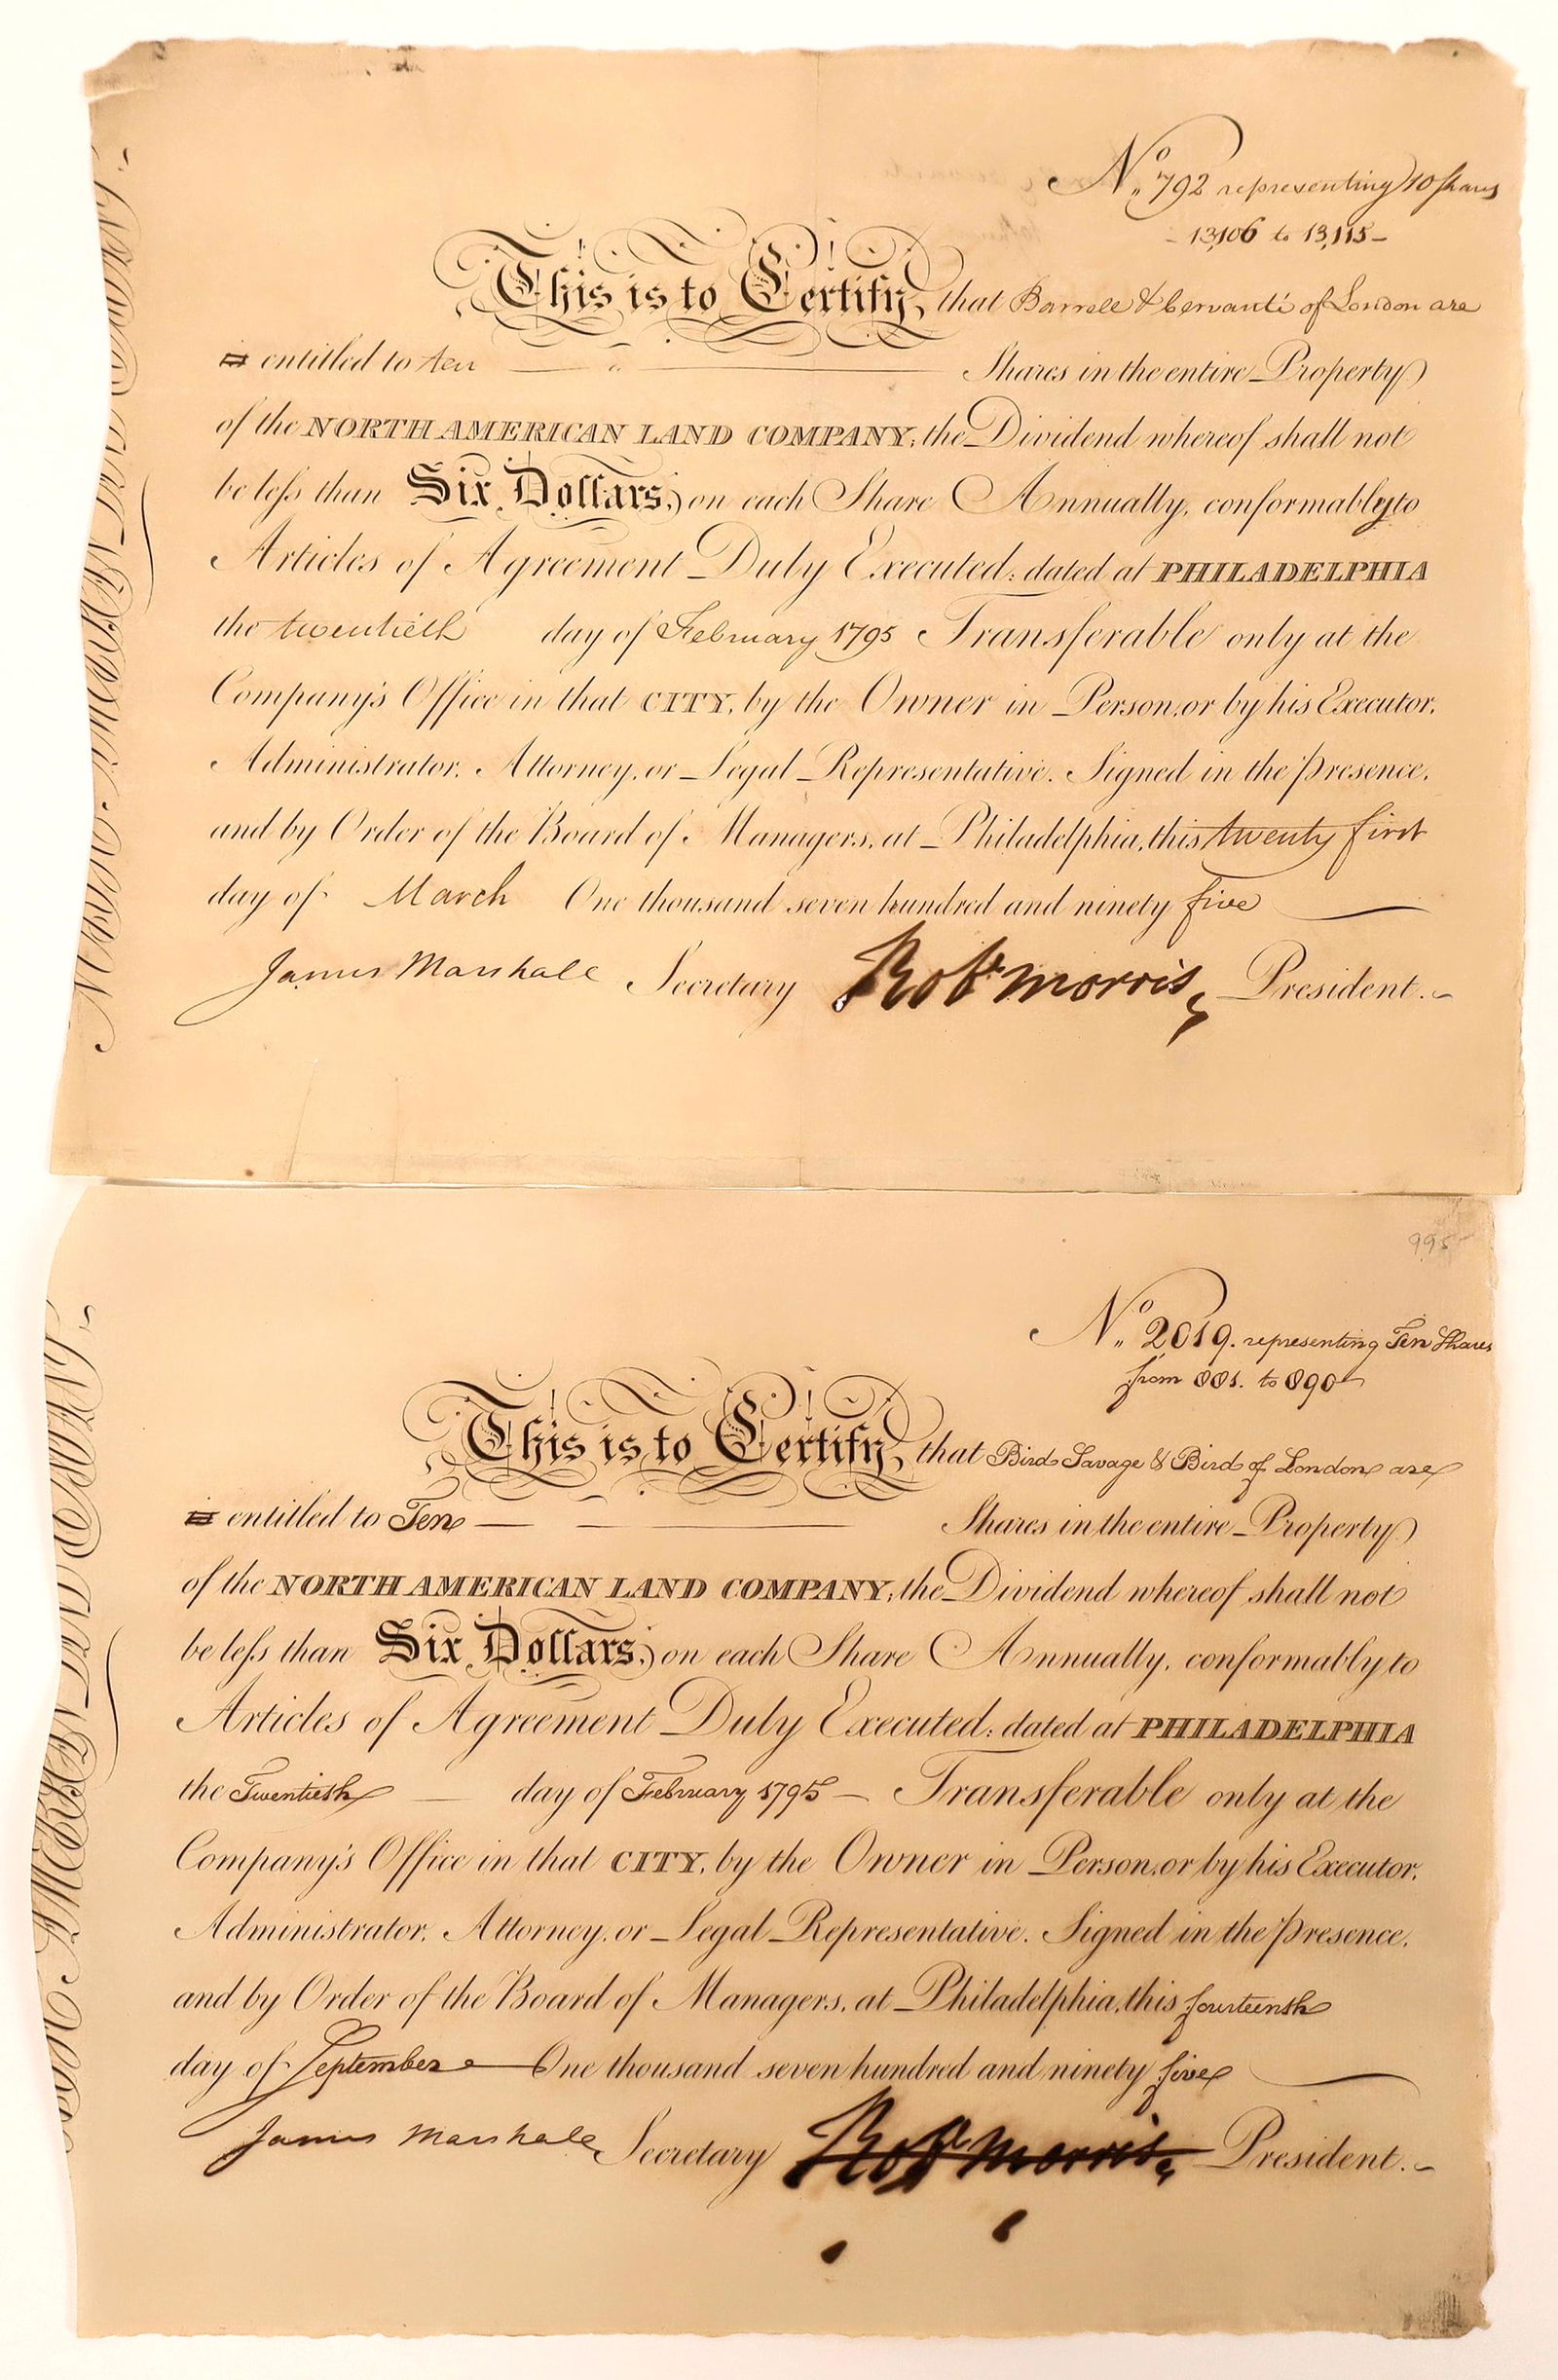 No. 792 representing 10 shares
13,106 to 13,115
This is to Certify, that Barrell & Servanté of London are
is entitled to ten Shares in the entire Property
of the NORTH AMERICAN LAND COMPANY; the Dividend whereof shall not
be less than Six Dollars, on each Share Annually, conformably to
Articles of Agreement Duly Executed; dated at PHILADELPHIA
the twentieth day of February 1795 Transferable only at the
Company's Office in that CITY, by the Owner in Person, or by his Executor,
Administrator, Attorney, or Legal Representative. Signed in the presence,
and by Order of the Board of Managers, at Philadelphia, this twenty first
day of March One thousand seven hundred and ninety five
James Marshall Secretary Robt Morris, President.
995
No. 2019. representing Ten Shares
from to 090
This is to Certify, that Bird Savage & Bird of London are
is entitled to Ten Shares in the entire Property
of the NORTH AMERICAN LAND COMPANY; the Dividend whereof shall not
be less than Six Dollars, on each Share Annually, conformably to
Articles of Agreement Duly Executed; dated at PHILADELPHIA
the Twentieth day of February 1795 Transferable only at the
Company's Office in that CITY, by the Owner in Person, or by his Executor,
Administrator, Attorney, or Legal Representative. Signed in the presence,
and by Order of the Board of Managers, at Philadelphia, this fourteenth
day of September One thousand seven hundred and ninety five
James Marshall Secretary Robt Morris, President.